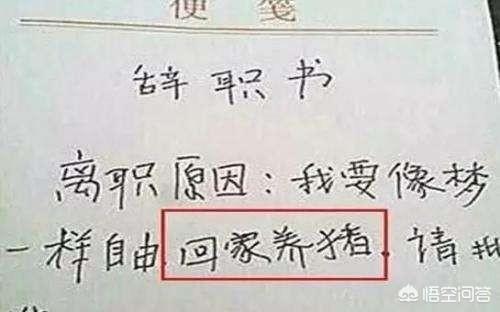 便笺
辞职书
离职原因:我要像梦
一样自由.回家养猪.请批
悟空问答